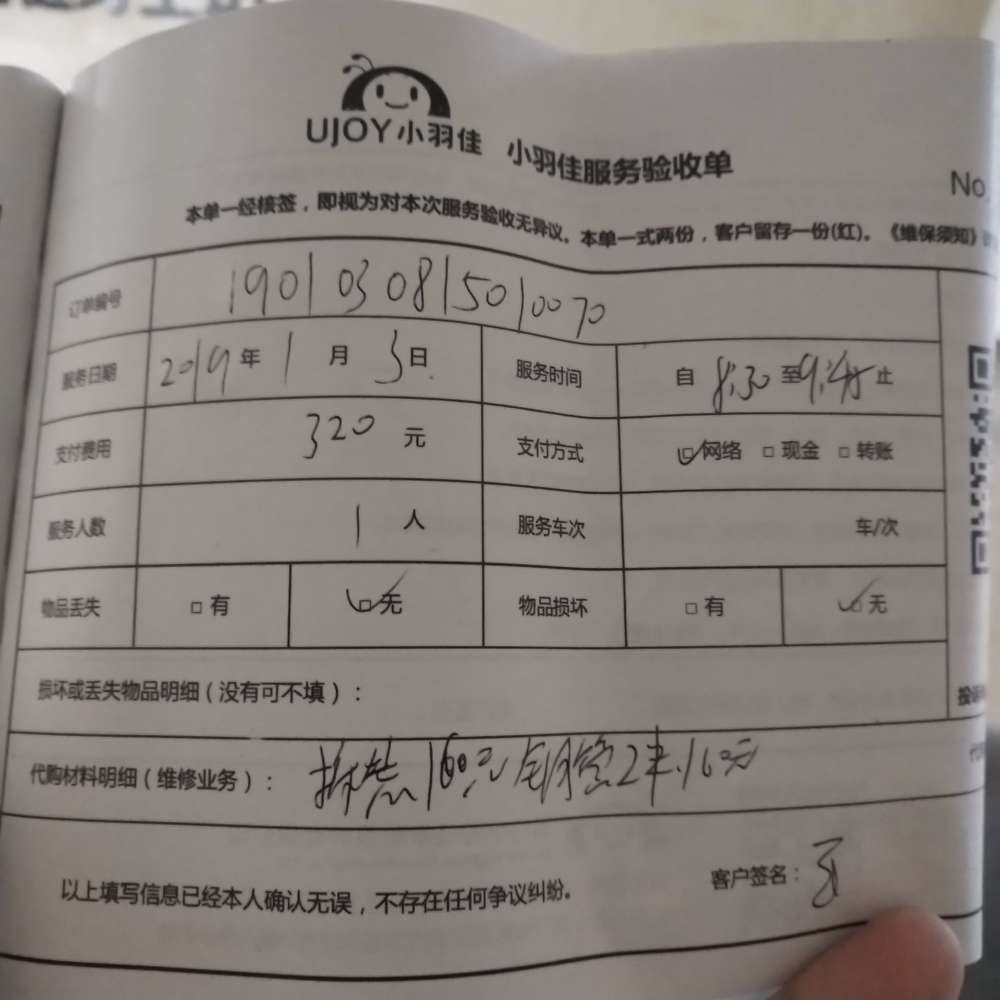 UJOY小羽佳 小羽佳服务验收单
No
本单一经核签，即视为对本次服务验收无异议。本单一式两份，客户留存一份(红)。《维保须知》
订单编号 1901030815010070
服务日期 2019年1月3日 服务时间 自8:30至9:45止
支付费用 320元 支付方式 ☑网络 □现金 □转账
服务人数 1人 服务车次 车/次
物品丢失 □有 ☑无 物品损坏 □有 ☑无
损坏或丢失物品明细（没有可不填）：
投诉
代购材料明细（维修业务）：拆装160元 铜管2米160元
以上填写信息已经本人确认无误，不存在任何争议纠纷。 客户签名：